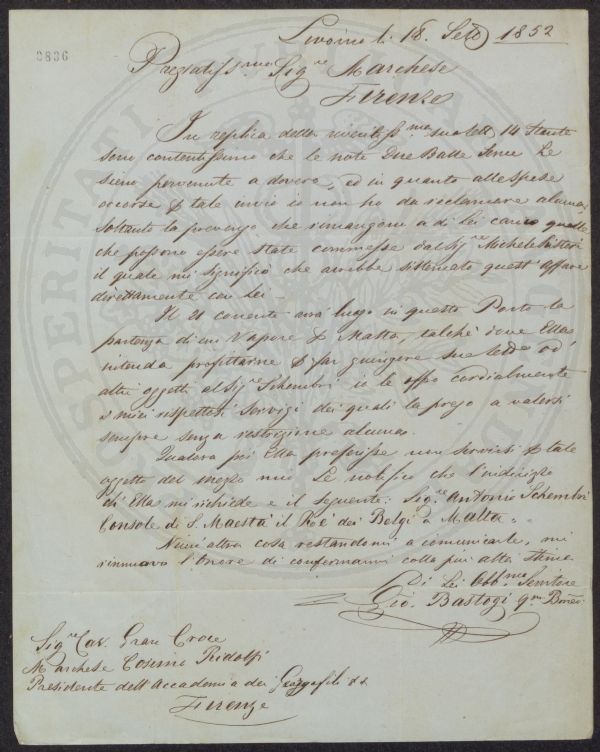 Livorno li 18. Sett 1852
3836
Pregiatiss.mo Sig.re Marchese
Firenze
In replica della riveritiss.ma sua lett 14 stante
sono contentissimo che le note Due Balle Le
sieno pervenute a dovere, ed in quanto alle spese
occorse p tale invio io non ho da reclamare alcuna,
soltanto la prevengo che rimangono a di lei carico quelle
che possono essere state commesse dal Sig.re Michele
il quale mi significò che avrebbe sistemato quest'affare
direttamente con Lei.
Il 21 corrente avrà luogo in questo Porto la
partenza di un Vapore p Malta, talché ove Ella
intenda profittarne p far giungere sue lettere od
altri oggetti al Sig.re Schembri io le offro cordialmente
i miei rispettosi servigi dei quali la prego a valersi
sempre senza restrizione alcuna.
Qualora poi Ella preferisse non servirsi p tale
oggetto del mezzo mio Le notifico che l'indirizzo
ch'Ella mi richiede è il seguente: Sig.re Antonio Schembri
Console di S. Maestà il Ré dei Belgi a Malta.
Niun'altra cosa restandomi a comunicarle, mi
rinnuovo l'onore di confermarmi colla più alta stima
Di Lei Obb.mo Servitore
Gio. Bastogi q.m
Sig.re Cav. Gran Croce
Marchese Cosimo Ridolfi
Presidente dell'Accademia dei Georgofili
Firenze